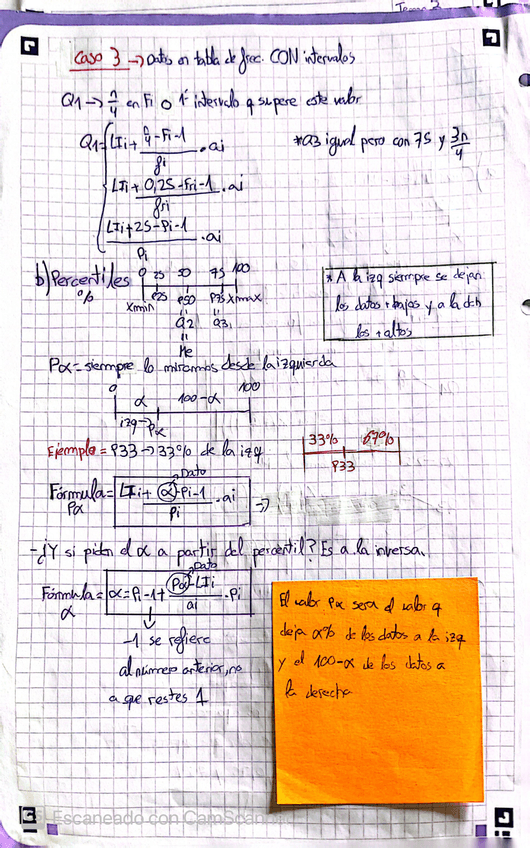 Tema 3
Caso 3 → Datos en tabla de frec. CON intervalos
Q1 → n/4 en Fi o 1º intervalo q supere este valor
Q1 = LIi + (n/4 - Fi-1)/fi . ai
*Q3 igual pero con 75 y 3n/4
LIi + (0,25 - Fri-1)/fri . ai
(LIi + 25 - Pi-1)/Pi . ai
b) Percentiles
%
0 25 50 75 100
Xmin P25 P50 P75 Xmax
Q2 Q3
Me
* A la izq siempre se dejan
los datos + bajos y a la dch
los + altos
Pα = siempre lo miramos desde la izquierda
0 100
α 100-α
izq → Pα
Ejemplo = P33 → 33% de la izq
33% 67%
P33
Dato
Fórmula = LIi + (α - Pi-1)/Pi . ai →
Pα
- ¿Y si piden el α a partir del percentil? Es a la inversa.
Dato
Fórmula = α = Pi-1 + (Pα - LIi)/ai . Pi
α
-1 se refiere
al número anterior, no
a que restes 1
El valor Pα será el valor q
deja α% de los datos a la izq
y el 100-α de los datos a
la derecha
Escaneado con CamScanner